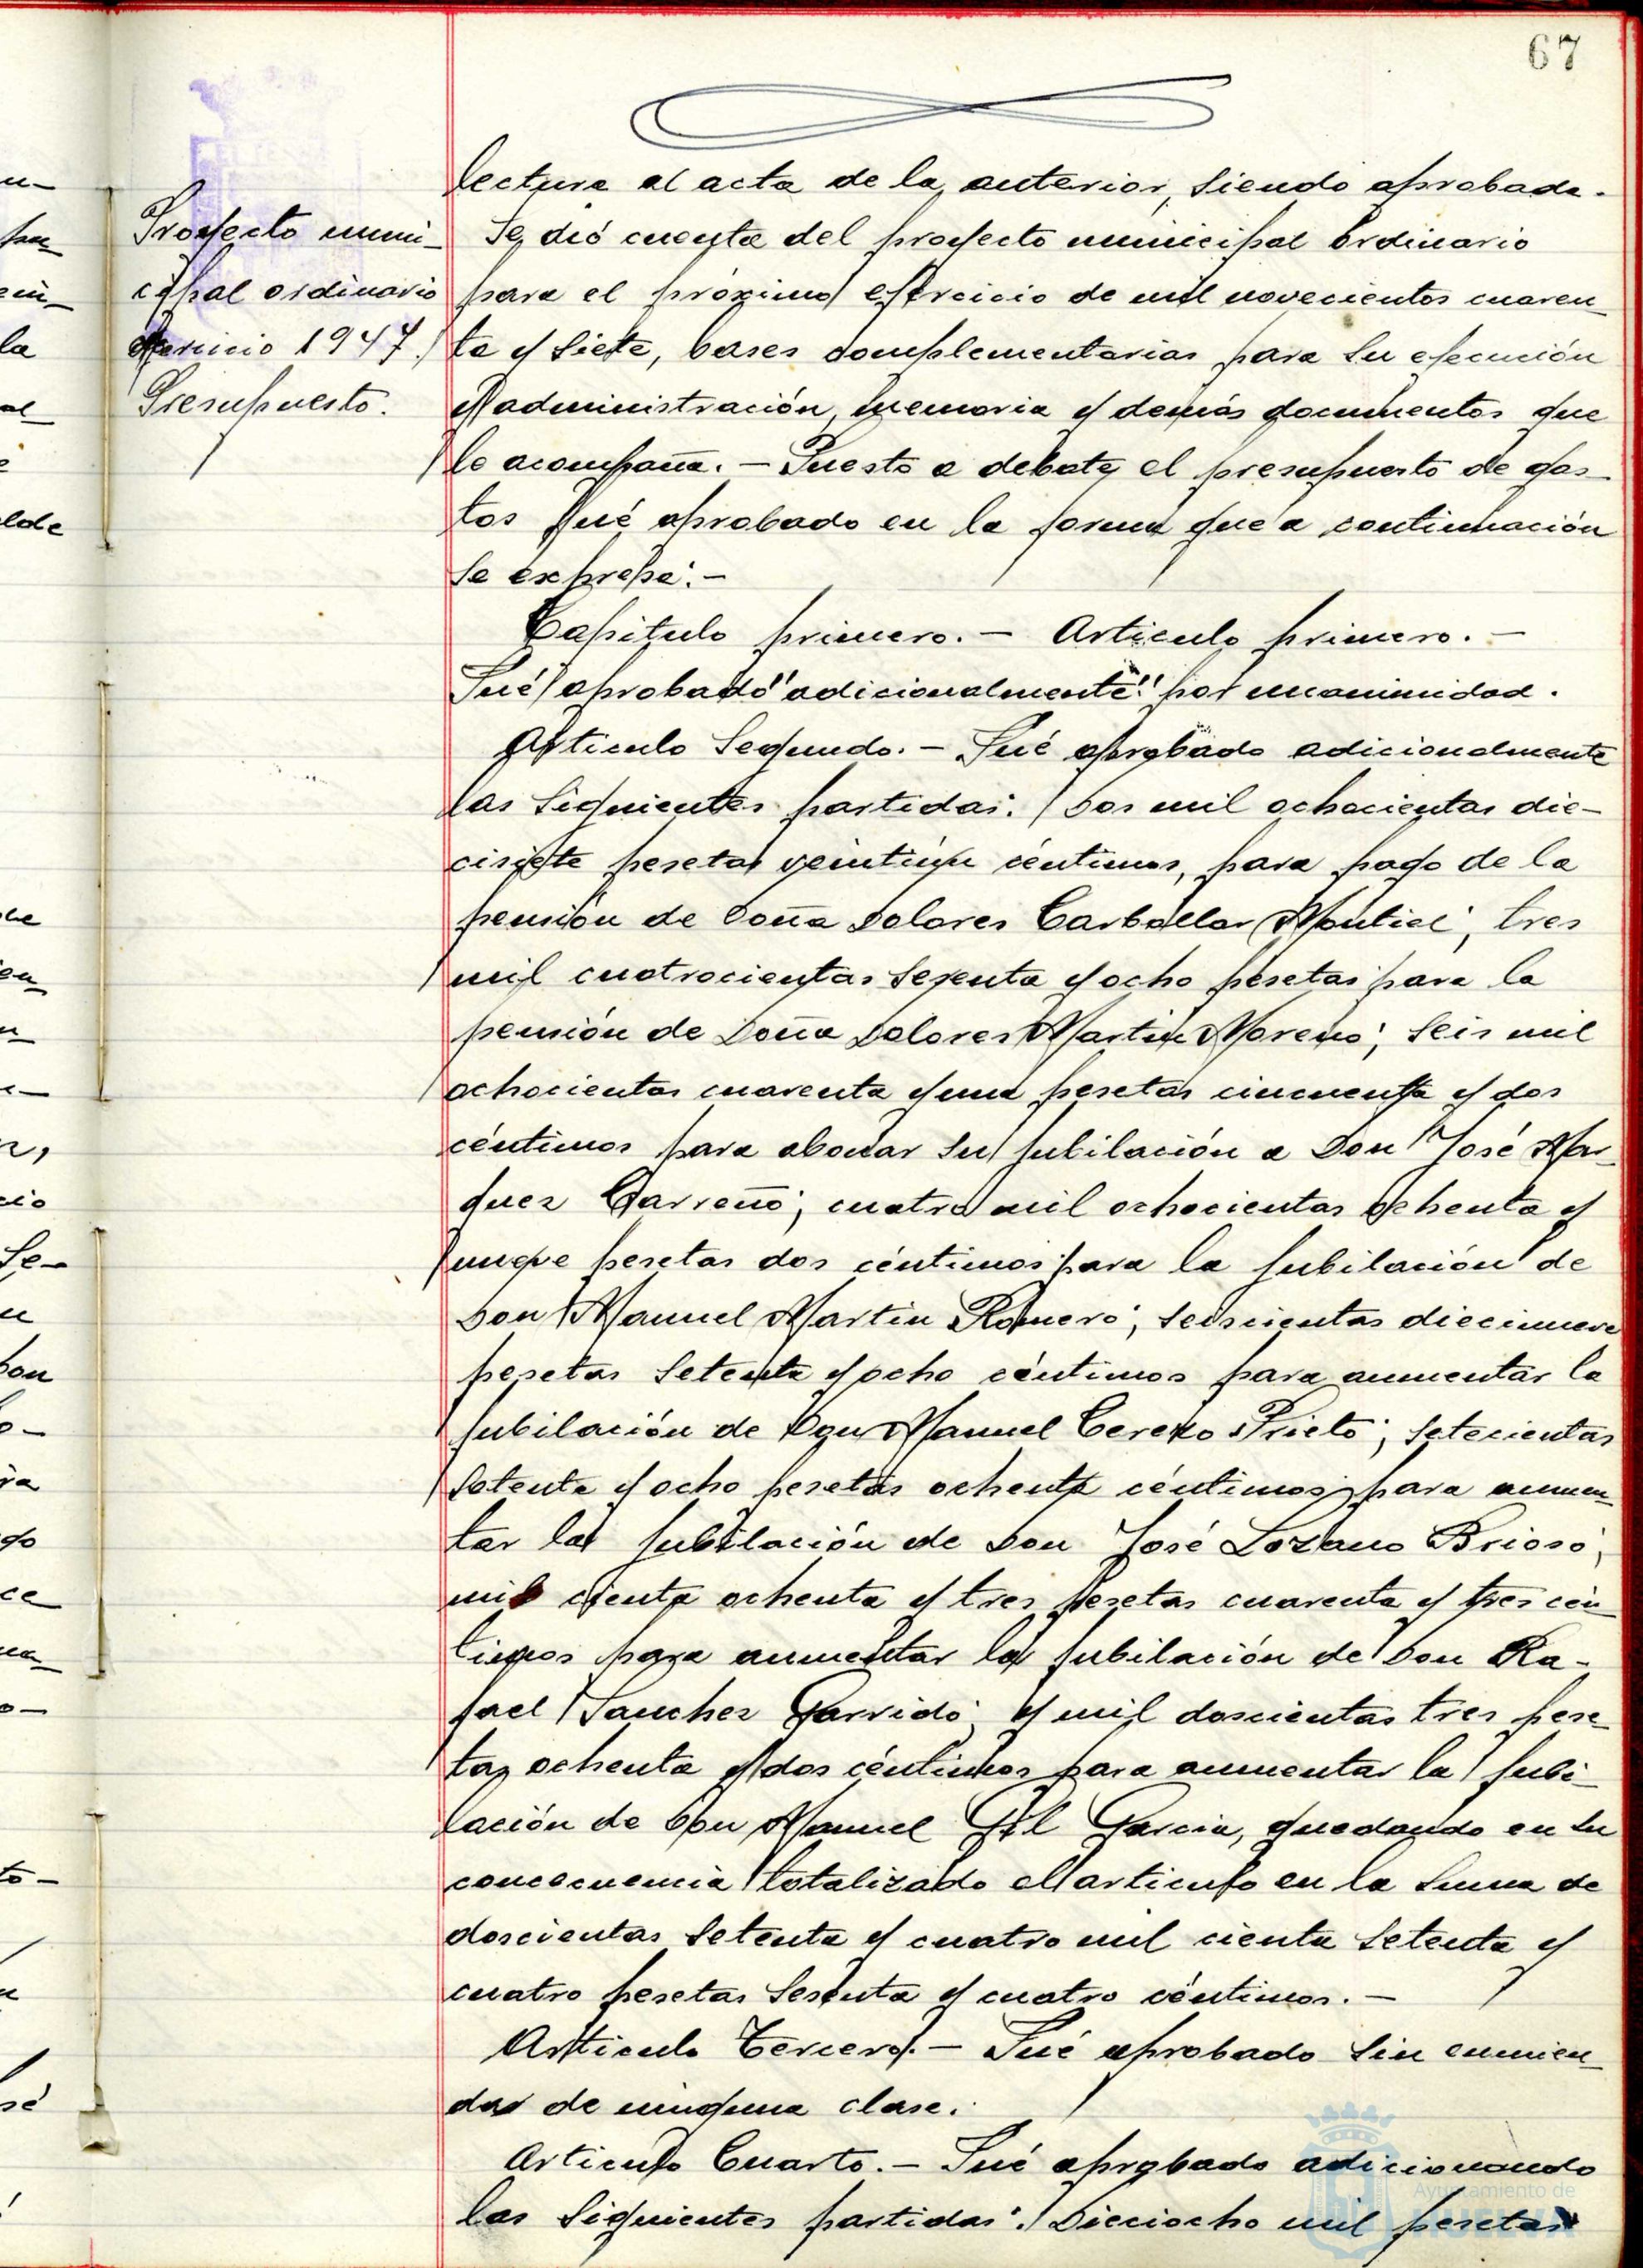 67
lectura al acta de la anterior, siendo aprobada.
Proyecto muni-
cipal ordinario
ejercicio 1947.
Presupuesto.
Se dió cuenta del proyecto municipal ordinario
para el próximo ejercicio de mil novecientos cuaren
ta y siete, bases complementarias para su ejecución
y administración, memoria y demás documentos que
le acompaña. - Puesto a debate el presupuesto de gas-
tos fué aprobado en la forma que a continuación
se expresa: -
Capítulo primero. - Articulo primero. -
Fué aprobado "adicionalmente" por unanimidad.
Articulo Segundo. - Fué aprobado adicionalmente
las siguientes partidas: Dos mil ochocientas die-
cisiete pesetas céntimos, para pago de la
pensión de Doña Dolores Carballar Montiel; tres
mil cuatrocientas sesenta y ocho pesetas para la
pensión de Doña Dolores Martin Moreno; seis mil
ochocientas cuarenta y una pesetas cincuenta y dos
céntimos para abonar su jubilación a Don José Mar-
quez Carreño; cuatro mil ochocientas ochenta y
nueve pesetas dos céntimos para la jubilación de
Don Manuel Martin Romero; seiscientas diecinueve
pesetas setenta y ocho céntimos para aumentar la
jubilación de Don Manuel Cerezo Prieto; setecientas
setenta y ocho pesetas ochenta céntimos para aumen-
tar la jubilación de Don José Lozano Brioso;
mil ciento ochenta y tres pesetas cuarenta y tres cén-
timos para aumentar la jubilación de Don Ra-
fael Sanchez Garrido; y mil doscientas tres pese-
tas ochenta y dos céntimos para aumentar la jubi-
lación de Don Manuel Gil Garcia, quedando en su
concecuencia totalizado el articulo en la suma de
doscientas setenta y cuatro mil ciento setenta y
cuatro pesetas sesenta y cuatro céntimos. -
Articulo Tercero. - Fué aprobado sin enmien-
das de ninguna clase.
Articulo Cuarto. - Fué aprobado adicionando
las siguientes partidas: Dieciocho mil pesetas
Ayuntamiento de
HUELVA